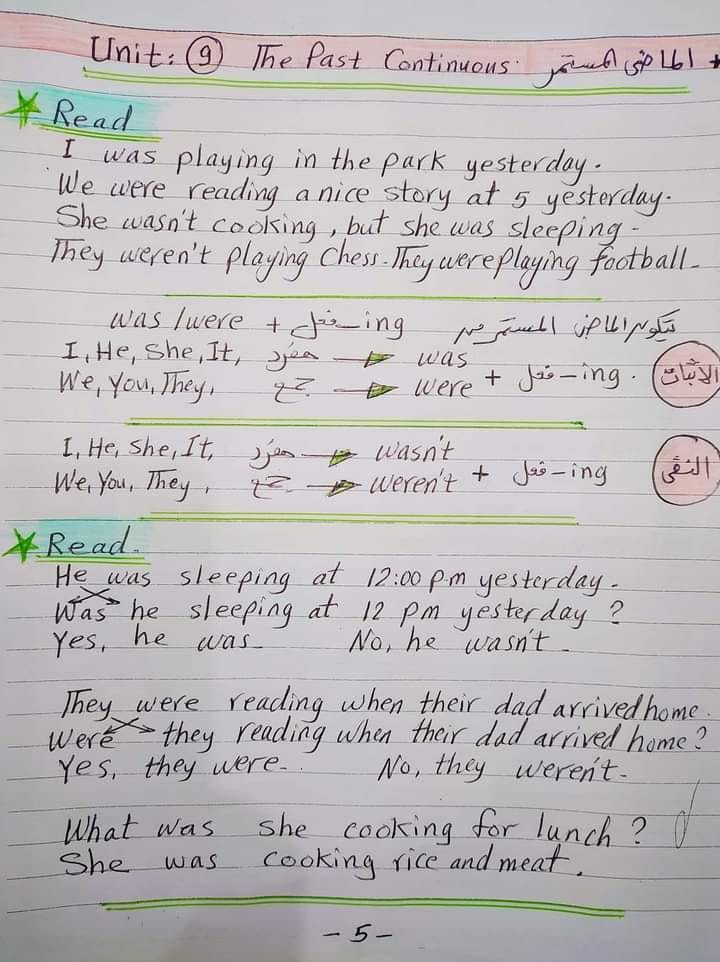 Unit: 9 The Past Continuous. الماضى المستمر
Read
I was playing in the park yesterday.
We were reading a nice story at 5 yesterday.
She wasn't cooking, but she was sleeping.
They weren't playing chess. They were playing football.
يتكون الماضى المستمر من was / were + فعل - ing
I, He, She, It, مفرد → was
We, You, They, جمع → were + فعل - ing. الاثبات
I, He, She, It, مفرد → wasn't
We, You, They, جمع → weren't + فعل - ing النفى
Read.
He was sleeping at 12:00 p.m yesterday.
Was he sleeping at 12 pm yesterday ?
Yes, he was. No, he wasn't.
They were reading when their dad arrived home.
Were they reading when their dad arrived home?
Yes, they were. No, they weren't.
What was she cooking for lunch ?
She was cooking rice and meat.
- 5 -